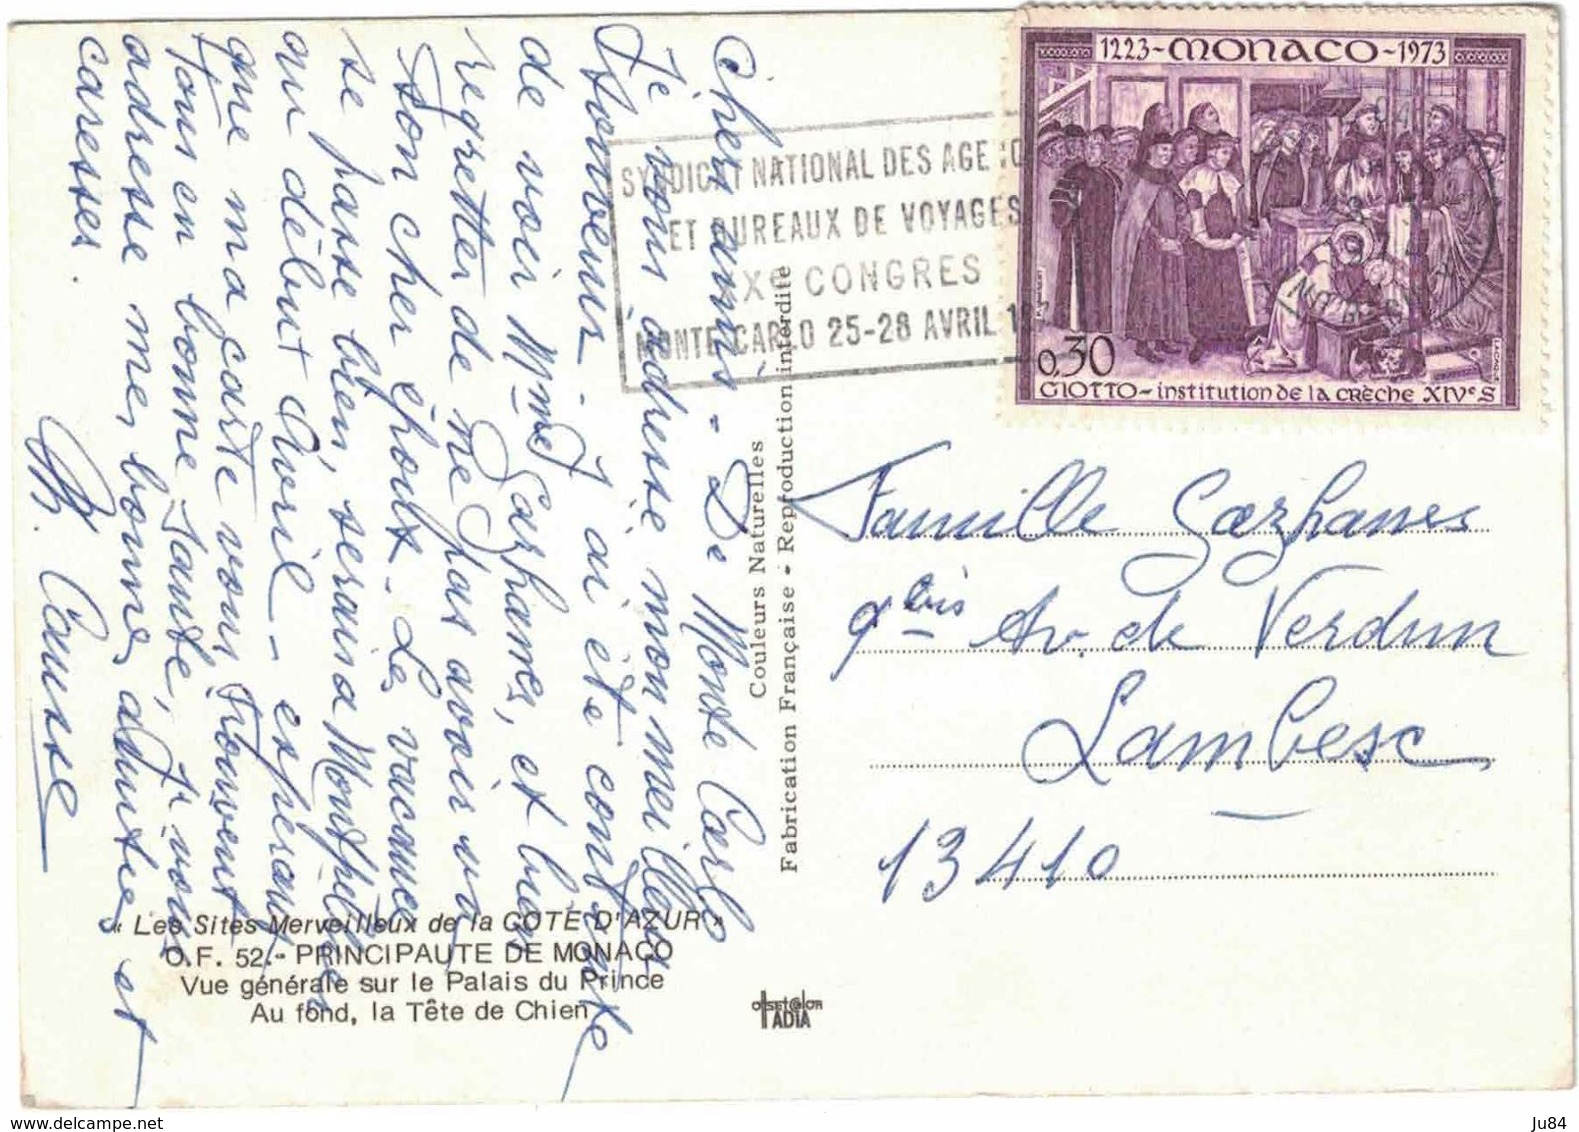 Chers amis - De Monte Carlo
Je vous adresse mon meilleur
souvenir - J'ai été contente
de voir Mme Cazhanes, et bien
regretter de ne pas avoir vu
son cher époux - Les vacances
se passe bien, serais a Montpellier
au début Avril - espérant
que ma carte vous trouvent
tous en bonne santé, je vous
adresse mes bonnes amitiés et
caresses.
M. Causse
SYNDICAT NATIONAL DES AGE
ET BUREAUX DE VOYAGES
XXe CONGRES
MONTE-CARLO 25-28 AVRIL 197
1223-MONACO-1973
0,30
GIOTTO-institution de la CRÈCHE XIVe.S
Famille Cazhanes
9 bis Av. de Verdun
Lambesc
13410
Couleurs Naturelles
Fabrication Française - Reproduction interdite
« Les Sites Merveilleux de la COTE D'AZUR »
O.F. 52.- PRINCIPAUTE DE MONACO
Vue générale sur le Palais du Prince
Au fond, la Tête de Chien
OFFSETCOLOR
ADIA
www.delcampe.net
Ju84